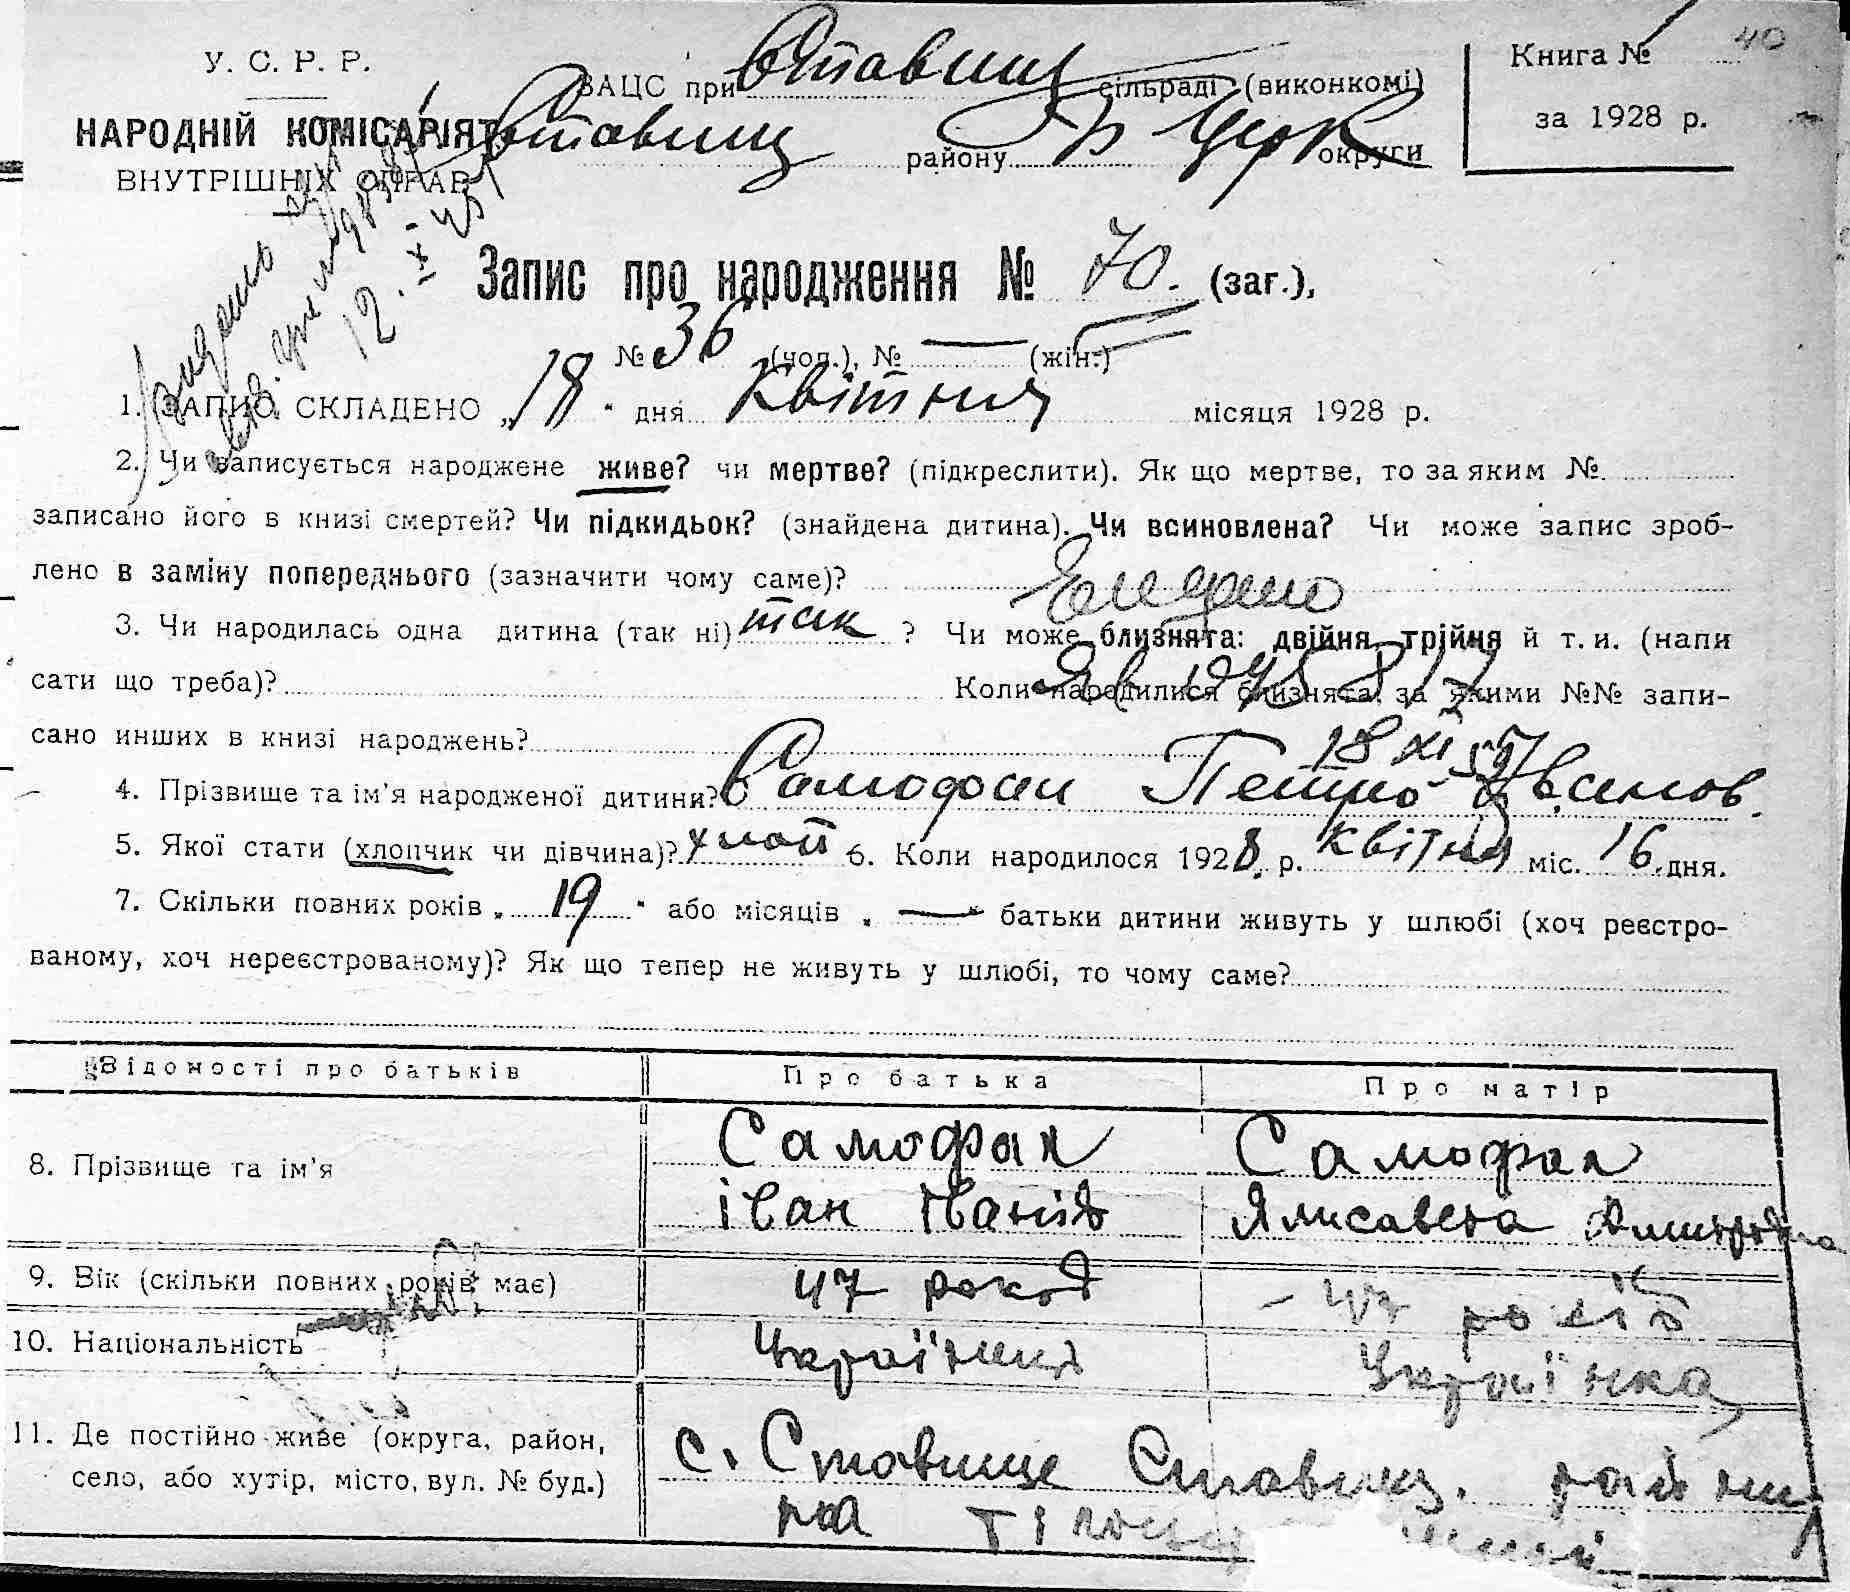 У. С. Р. Р.
НАРОДНІЙ КОМІСАРІЯТ
ВНУТРІШНІХ СПРАВ
ЗАЦС при Ставищ сільраді (виконкомі)
Ставищ району Б Церк округи
Книга № 40
за 1928 р.
Видано
12. IX 45
Запис про народження № 70. (заг.),
№ 36 (чол.), № — (жін.)
1. ЗАПИС СКЛАДЕНО „18" дня квітня місяця 1928 р.
2. Чи записується народжене живе? чи мертве? (підкреслити). Як що мертве, то за яким №
записано його в книзі смертей? Чи підкидьок? (знайдена дитина). Чи всиновлена? Чи може запис зроб-
лено в заміну попереднього (зазначити чому саме)?
3. Чи народилась одна дитина (так ні) так ? Чи може близнята: двійня, трійня й т. и. (напи
сати що треба)? Коли народилися близнята, за якими №№ запи-
сано инших в книзі народжень?
18 XI 57
4. Прізвище та ім’я народженої дитини? Самофал Петро Іванов.
5. Якої стати (хлопчик чи дівчина)? хлоп 6. Коли народилося 1928. р. квітня міс. 16 дня.
7. Скільки повних років „ 19 " або місяців „ — " батьки дитини живуть у шлюбі (хоч реєстро-
ваному, хоч нереєстрованому)? Як що тепер не живуть у шлюбі, то чому саме?
Відомості про батьків Про батька Про матір
8. Прізвище та ім’я Самофал Самофал
Іван Іванів Ялисавета
9. Вік (скільки повних років має) 47 років 47 років
10. Національність Українец Українка
11. Де постійно живе (округа, район, с. Ставище Ставищ.
село, або хутір, місто, вул. № буд.) на